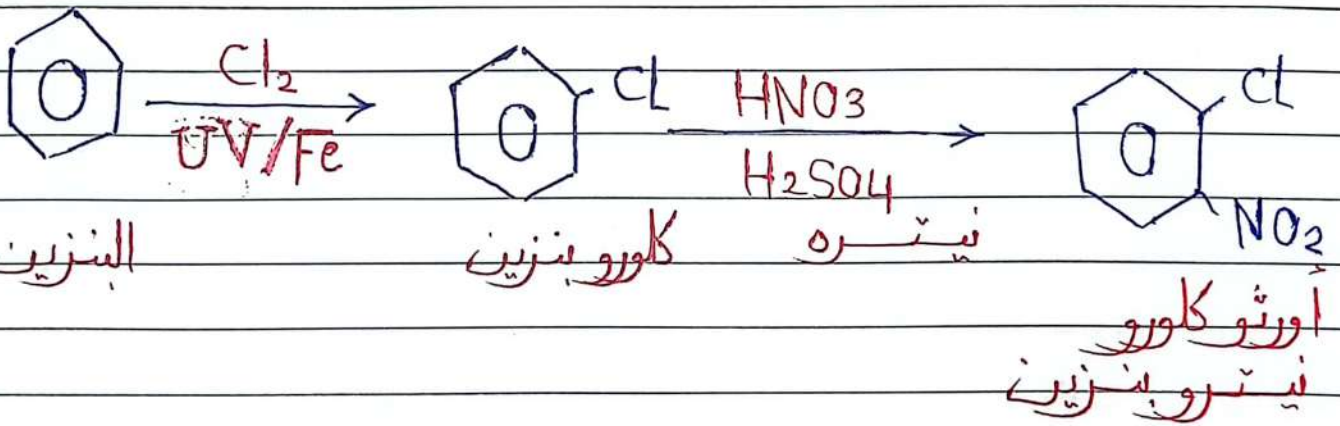 Cl₂
UV/Fe
Cl
HNO3
H₂SO4
Cl
NO₂
البنزين
كلورو بنزين
نيتره
أورثو كلورو
نيترو بنزين